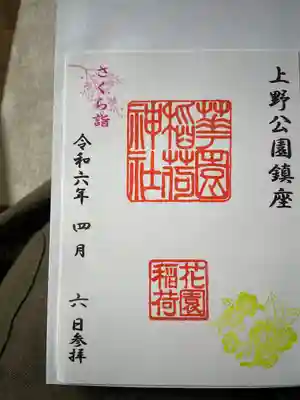 上野公園鎮座
華園稲荷神社
花園稲荷
さくら詣
令和六年 四月 六日参拝